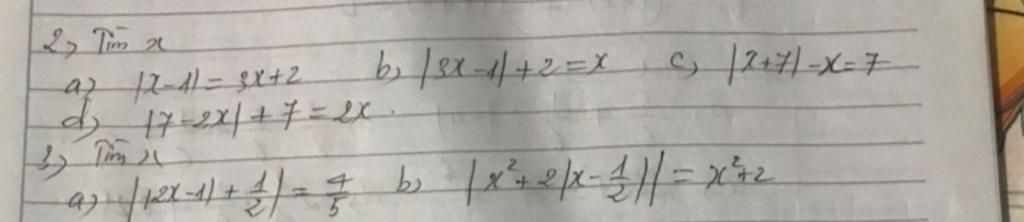 2, Tìm x
a, |x-1| = 3x+2 b, |3x-1|+2=x c, |x+7|-x=7
d, |7-2x|+7=2x.
3, Tìm x
a, ||2x-1|+\frac{1}{2}|=\frac{4}{5} b, |x²+2|x-\frac{1}{2}||=x²+2